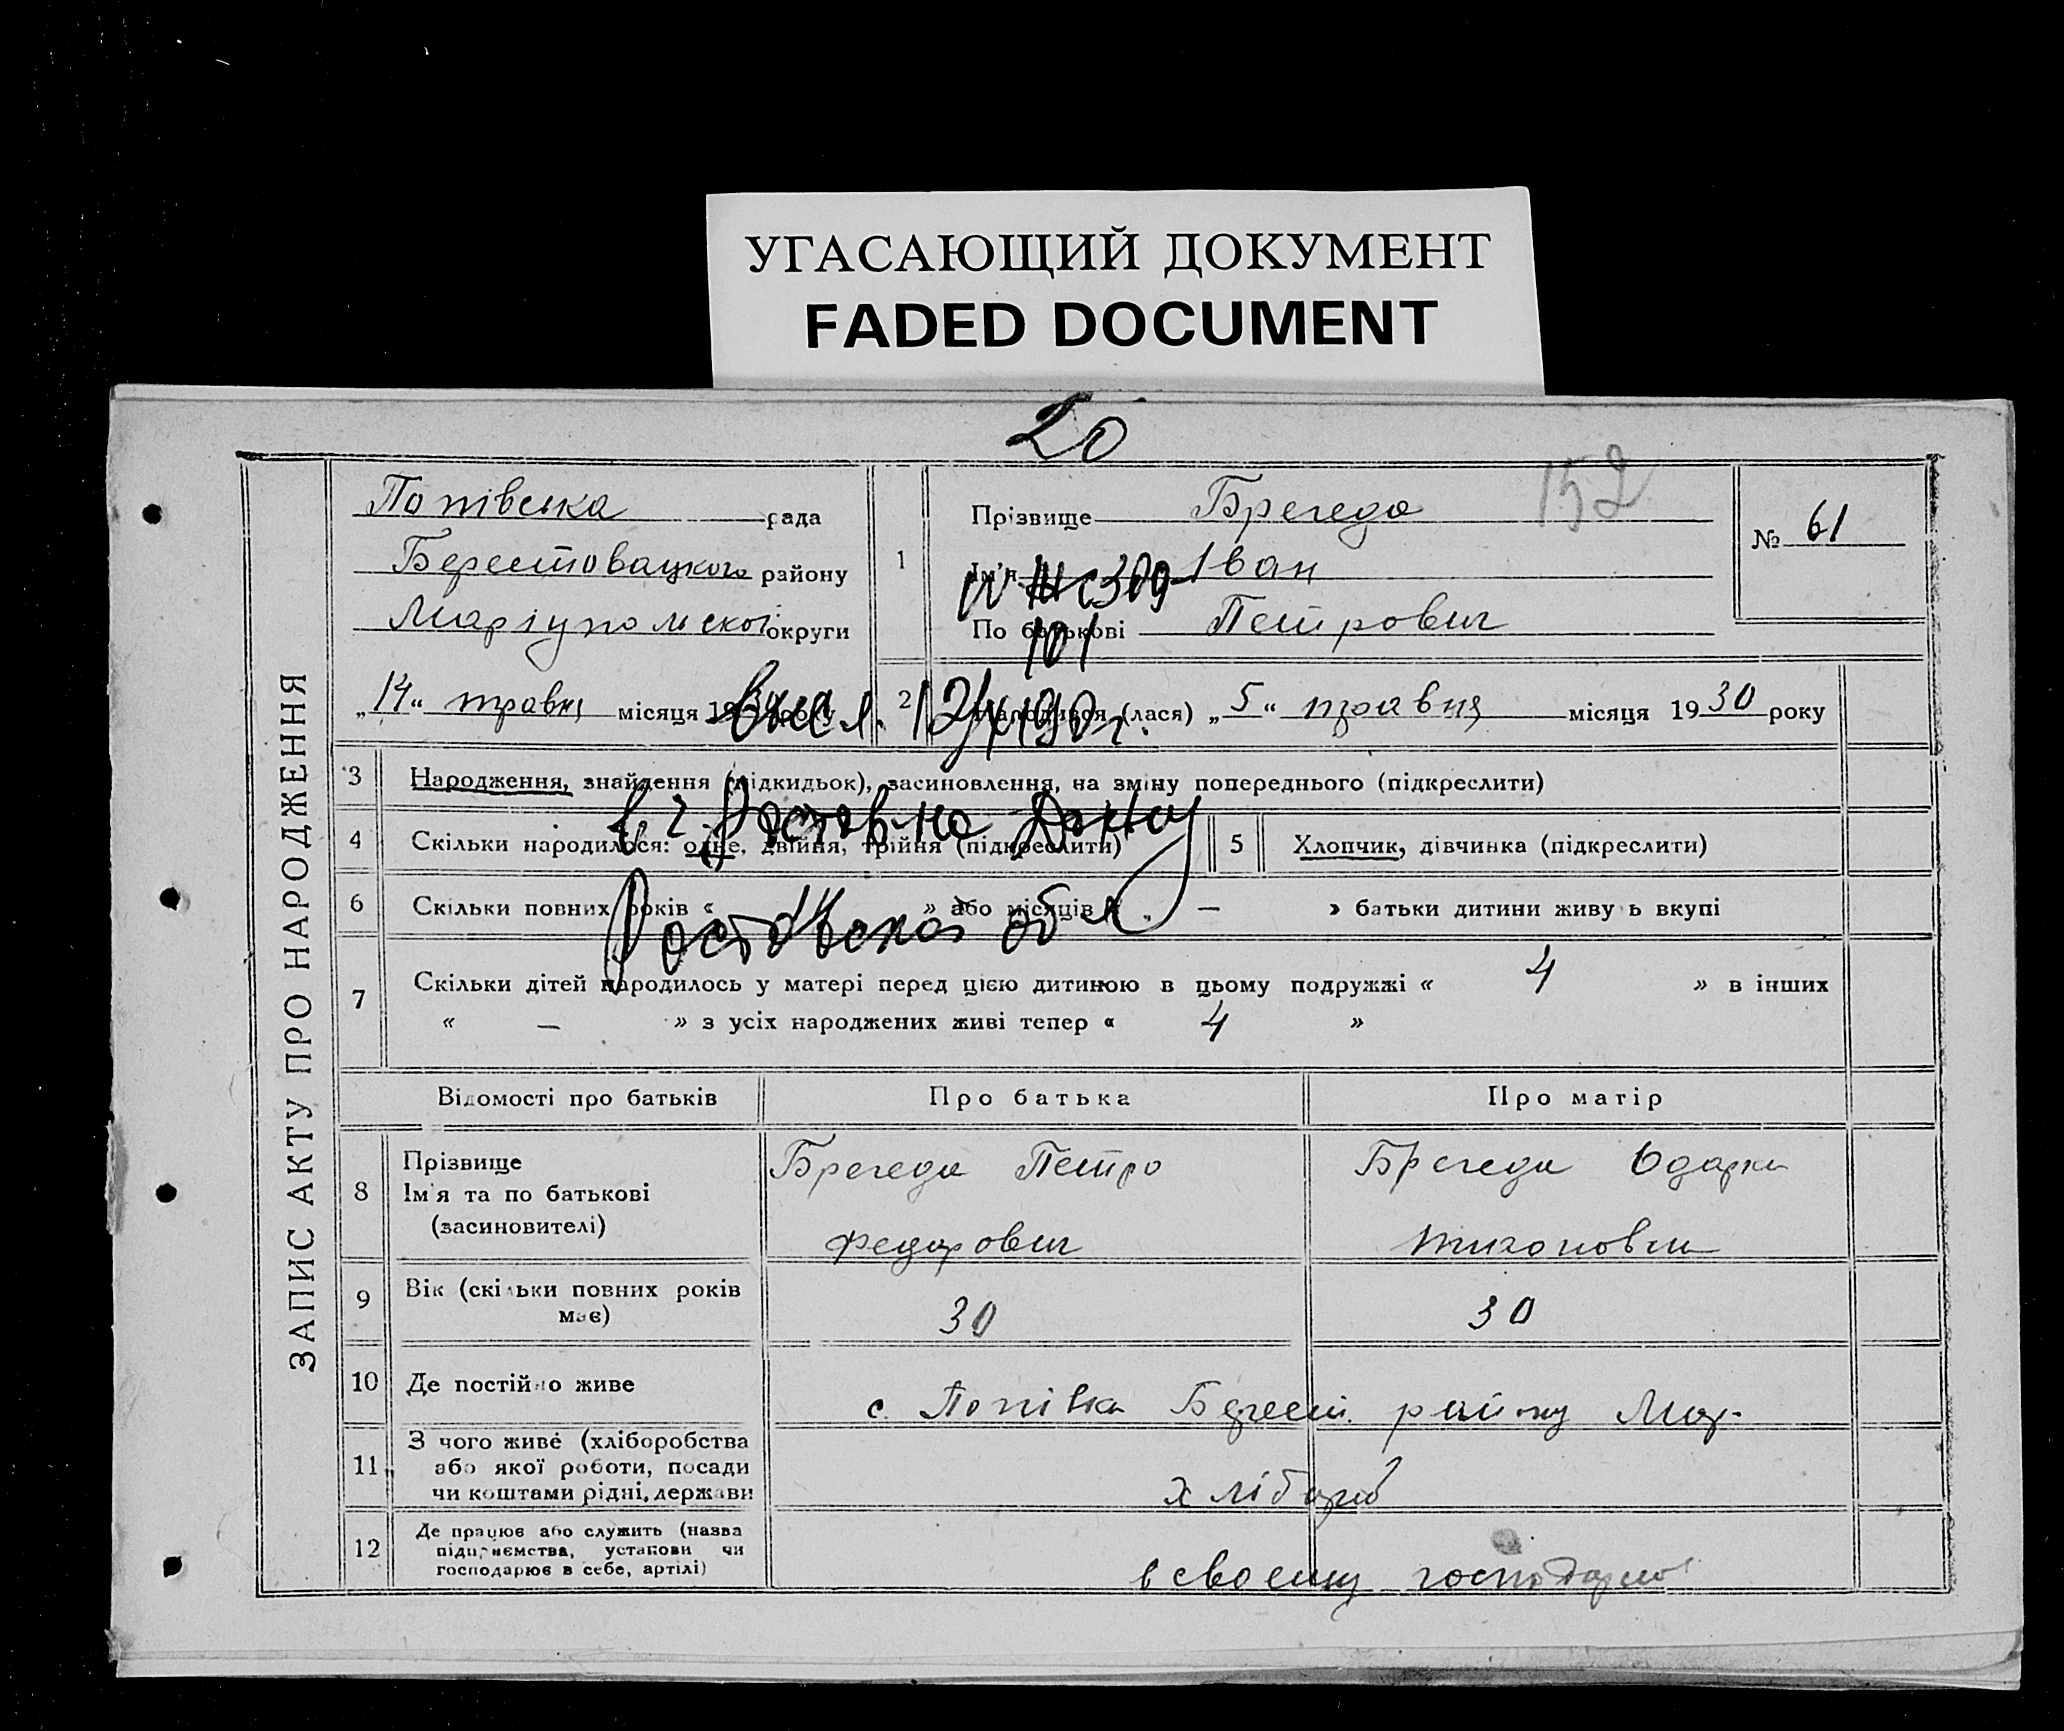 УГАСАЮЩИЙ ДОКУМЕНТ
FADED DOCUMENT
20
152
ЗАПИС АКТУ ПРО НАРОДЖЕННЯ
Попівська рада
Берестовацкого району
Маріупольскої округи
„14“ травня місяця 19
1
Прізвище Брегеда
Ім'я Іван
По батькові Петрович
№ 61
101
2 (лася) „5“ травня місяця 1930 року
3 Народження, знайдення (підкидьок), засиновлення, на зміну попереднього (підкреслити)
в г. Ростов-на Дону
4 Скільки народилося: одне, двійня, трійня (підкреслити)
5 Хлопчик, дівчинка (підкреслити)
6 Скільки повних років « » або місяців „ — » батьки дитини живуть вкупі
Ростовской обл
7 Скільки дітей народилось у матері перед цією дитиною в цьому подружжі « 4 » в інших
« — » з усіх народжених живі тепер « 4 »
Відомості про батьків Про батька Про матір
8 Прізвище
Ім'я та по батькові
(засиновителі)
Брегеда Петро
федорович
Брегеда Одарка
тихоновна
9 Вік (скільки повних років
має)
30 30
10 Де постійно живе
с. Попівка Берест. району Мар.
11 З чого живе (хліборобства
або якої роботи, посади
чи коштами рідні, держави
хлібороб
12 Де працює або служить (назва
підприємства, установи чи
господарює в себе, артілі)
в своему